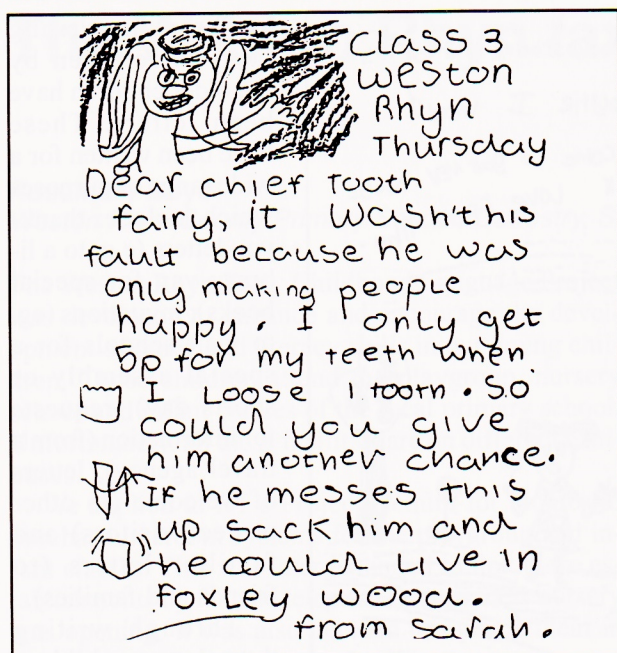 CLASS 3
Weston
Rhyn
Thursday
Dear chief Tooth
fairy, it wasn't his
fault because he was
only making people
happy. I only get
5p for my teeth when
I Loose 1 tooth. So
could you give
him another chance.
If he messes this
up sack him and
he could Live in
Foxley Wood.
from Sarah.